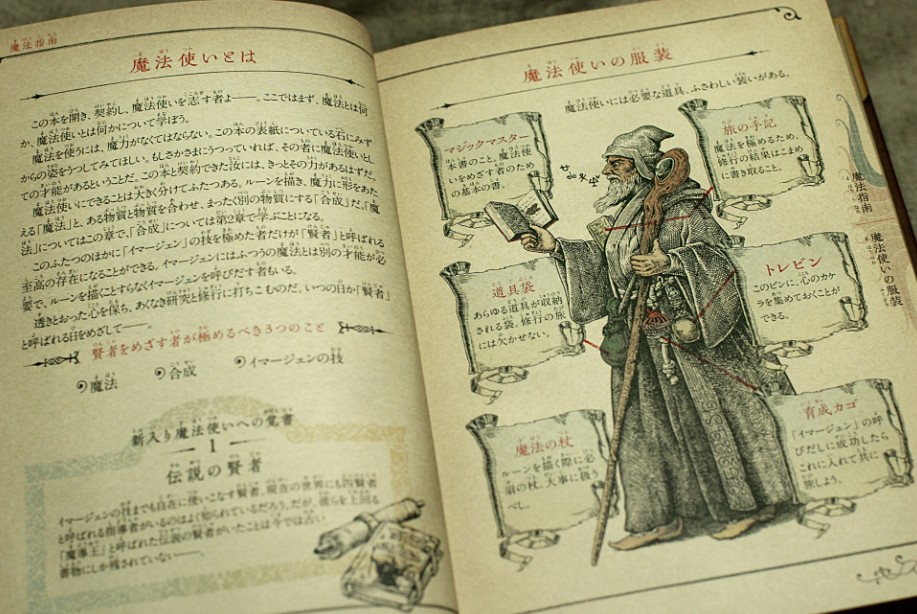 魔法指南
魔法使いとは
この本を開き、契約し、魔法使いを志す者よ――。ここではまず、魔法とは何
か、魔法使いとは何かについて学ぼう。
魔法を使うには、魔力がなくてはならない。この本の表紙についている石にみず
からの姿をうつしてみてほしい。もしさかさまにうつっていれば、その者に魔法使いとし
ての才能があるということだ。この本と契約できた汝には、きっとその力があるはずだ。
魔法使いにできることは大きく分けてふたつある。ルーンを描き、魔力に形をあた
える「魔法」と、ある物質と物質を合わせ、まったく別の物質にする「合成」だ。「魔
法」についてはこの章で、「合成」については第2章で学ぶことになる。
このふたつのほかに「イマージェン」の技を極めた者だけが「賢者」と呼ばれる
至高の存在になることができる。イマージェンにはふつうの魔法とは別の才能が必
要で、ルーンを描くことすらなくイマージェンを呼びだす者もいる。
透きとおった心を保ち、あくなき研究と修行に打ちこむのだ。いつの日か「賢者」
と呼ばれる日をめざして――。
賢者をめざす者が極めるべき3つのこと
魔法
合成
イマージェンの技
新入り魔法使いへの覚書
1
伝説の賢者
イマージェンの技までも自在に使いこなす賢者。現在の世界にも四賢者
と呼ばれる指導者がいるのはよく知られているだろう。だが、彼らを上回る
「魔導王」と呼ばれた伝説の賢者がいたことは今では古い
書物にしか残されていない――。
魔法使いの服装
魔法使いには必要な道具、ふさわしい装いがある。
マジックマスター
本書のこと。魔法使
いをめざす者のため
の基本の書。
旅の手記
魔法を極めるため、
修行の結果はこまめ
に書き取ること。
道具袋
あらゆる道具が収納
される袋。修行の旅
には欠かせない。
トレビン
このビンに、心のカケ
ラを集めておくことが
できる。
魔法の杖
ルーンを描く際に必
須の杖。大事に扱う
べし。
育成カゴ
「イマージェン」の呼
びだしに成功したら
これに入れて共に
旅しよう。
魔法指南
魔法使いの服装